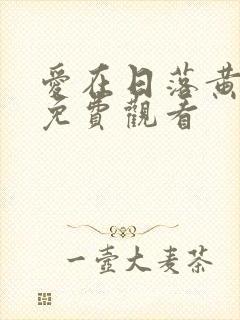 愛在日落黃
免費觀看
一壺大麦茶